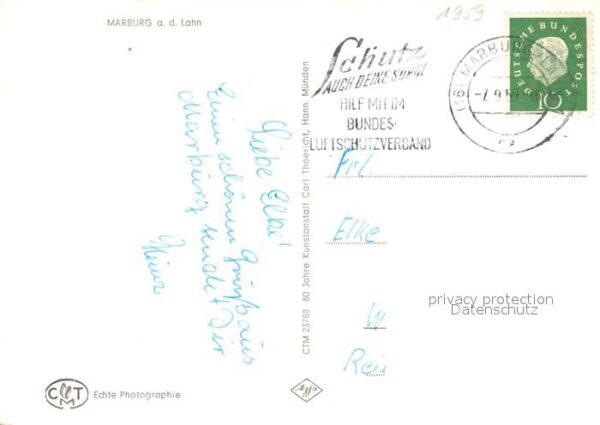 MARBURG a. d. Lahn
1959
Schutz
AUCH DEINE SORGE
HILF MIT IM
BUNDES-
LUFTSCHUTZVERBAND
(16) MARBURG
-7.9.59
DEUTSCHE BUNDESPOST
10
Liebe Elke!
Einen schönen Gruß aus
Marburg sendet Dir
Heinz
CTM 23788 80 Jahre Kunstanstalt Carl Thoericht, Hann. Münden
Frl.
Elke
W
Rei
privacy protection
Datenschutz
CTM
Echte Photographie
Agfa